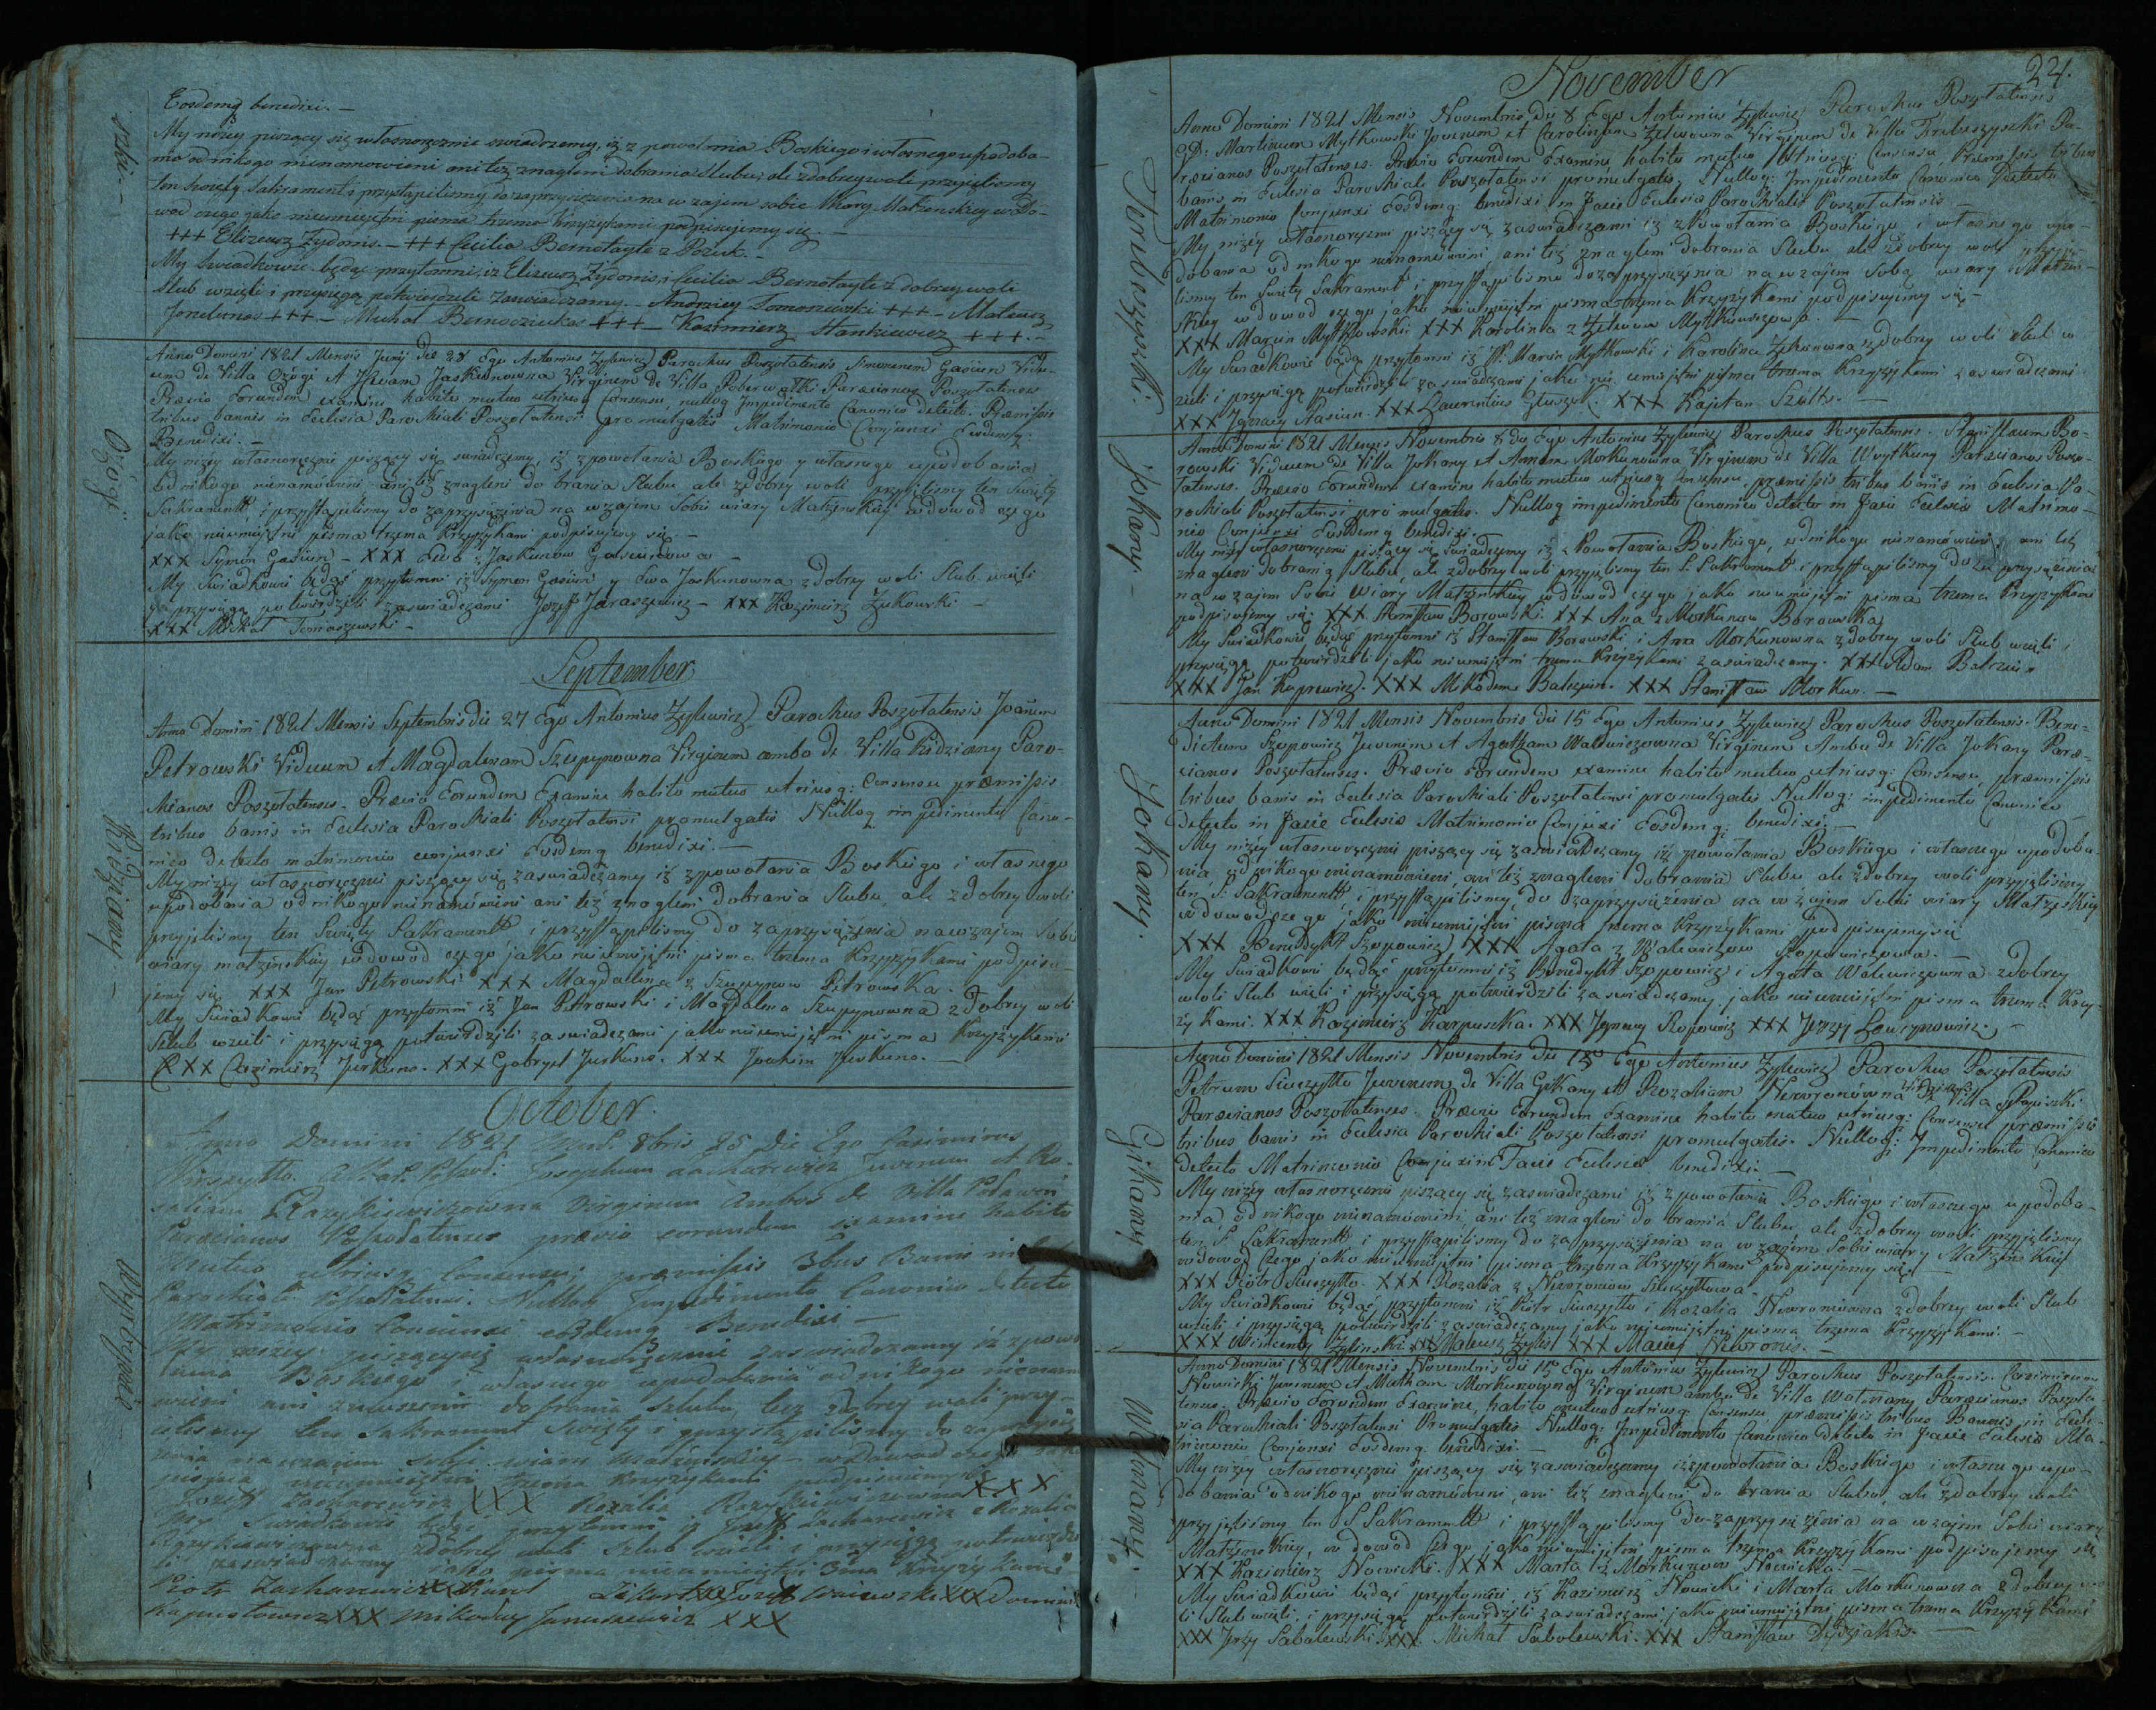 Eosdemq benedixi. —
My niżey piszący się własnoręcznie swiadczemy, iż z powołania Boskiego i własnego upodoba-
nia od nikogo nienamowieni ani też znagleni do brania Slubu, ale z dobrey woli przyjeliśmy
ten swięty Sakrament i przystąpiliśmy do zaprzysiężenia na wzajem sobie Wiary Małżenskiey w do-
wod czego jako nieumiejętni pisma trzema Krzyżykami podpisujemy się. —
+++ Elizeusz Zydonis. — +++ Cecilia Bernotayte z
My Swiadkowie będąc przytomni, iż Elizeusz Zydonis, i Cecilia Bernotayte z dobrey woli
Slub wzieli i przysięgą potwierdzili zaswiadczamy. — Andrzey Tomaszewski +++ — Mateusz
+++ — Michał +++ — Kazimierz Stankiewicz +++. —
Ożogi
Anno Domini 1821 Mensis Junij die 28 Ego Antonius Zylewicz Parochus Poszołatensis Simeonem Gasiun Vidu-
um de Villa Ozogi et Evam Jaskunowna Virginem de Villa Poberwałki Paraecianos Poszołatenses
Praevio Eorundem examine habito mutuo utriusq Consensu nulloq Impedimento Canonico detecto. Praemissis
tribus bannis in Ecclesia Parochiali Poszołatensi promulgatis Matrimonio Conjunxi Eosdemq
Benedixi. —
My niżey własnoręczni piszący się swiadczemy, iż z powołania Boskiego y własnego upodobania
od nikogo nienamowieni ani też znagleni do brania Slubu ale z dobrey woli przyjeliśmy ten Swięty
Sakrament i przystąpiliśmy do zaprzysiężenia na wzajem Sobie wiary Małżenskiey w dowod czego
jako nieumiejętni pisma trzema Krzyżykami podpisujemy się —
XXX Symon Gasiun — XXX Ewa z Jaskunow Gasiunowa —
My Swiadkowie będąc przytomni iż Symon Gasiun y Ewa Jaskunowna z dobrey woli Slub wzieli
y przysięgą potwierdzili zaswiadczami Jozeff Jaraszewicz — XXX Kazimierz Zukowski —
XXX Michał Tomaszewski —
September
Kidziany —
Anno Domini 1821 Mensis Septembris die 27 Ego Antonius Zylewicz Parochus Poszołatensis Joannem
Petrowski Viduum et Magdalenam Szupynowna Virginem ambo de Villa Kidziany Paro-
chianos Poszołatenses. Praevio Eorundem Examine habito mutuo utriusq: Consensu praemissis
tribus bannis in Ecclesia Parochiali Poszołatensi promulgatis Nulloq impedimento Cano-
nico detecto matrimonio conjunxi Eosdemq benedixi. —
My niżey własnoręczni piszący się zaswiadczamy iż z powołania Boskiego i własnego
upodobania od nikogo nienamówieni ani też znagleni do brania Slubu, ale z dobrey woli
przyjeliśmy ten Swięty Sakrament i przystąpiliśmy do zaprzysiężenia nawzajem Sobie
wiary małżenskiey w dowod czego jako nieumiejętni pisma trzema Krzyżykami podpisu-
jemy się XXX Jan Petrowski XXX Magdalena z Szupynow Petrowska. —
My Swiadkowie będąc przytomni iż Jan Petrowski i Magdalena Szupynowna z dobrey woli
Slub wzieli i przysięgą potwierdzili zaswiadczami jako nieumiejętni pisma Krzyżykami
XXX Cazimierz Jurkuno. XXX Gabryel Jurkuno. XXX Joachim Jurkuno. —
October.
Anno Domini 1821 8bris 25 Die Ego Casimirus
Wirszyłło Josephum Zacharewicz Juvenem et Ro-
saliam Razykiewiczowna Virginem Ambos de Villa
Paraecianos praevio eorundem examine habito
Mutuo utriusq Consensu; praemissis 3bus Bannis in
Parochiali Nulloq Impedimento Canonico detecto
Matrimonio Conjunxi eosdemq Benedixi —
My niżey piszący się własnoręcznie zaswiadczamy iż z powo-
łania Boskiego i własnego upodobania od nikogo nienamo-
wieni ani zniewoleni do brania szlubu, lecz z dobrey woli przy-
ieliśmy ten Sakrament Swięty i przystąpiliśmy do
na wzajem sobie wiary Małżeńskiey — w dowod czego jako
pisma nieumiejętni trzema Krzyżykami podpisuiemy się
Jozeff Zacharewicz XXX Rozalia Razykiewiczowna XXX
My Swiadkowie będąc przytomni iż Jozeff Zacharewicz i Rozalia
Razykiewiczowna z dobrey woli Szlub wzieli i przysięgą potwierdzi-
li zaswiadczamy jako pisma nieumiejętni 3ma Krzyżykami
Piotr Zacharewicz XXX Jozeff XXX Dominik
XXX Mikołay Januszewicz XXX
November
22.
Anno Domini 1821 Mensis Novembris die 8 Ego Antonius Zylewicz Parochus Poszołatensis
Martinum Mytkowski Juvenem et Carolinam Zelwowna Virginem de Villa Pa-
raecianos Poszołatenses. Praevio Eorundem Examine habito mutuo Utriusq: Consensu, Praemissis tribus
bannis in Ecclesia Parochiali Poszołatensi promulgatis. Nulloq: Impedimento Canonico Detecto
Matrimonio Conjunxi Eosdemq: benedixi in Facie Ecclesia Parochialis Poszołatensis —
My niżéy własnoręczni piszący się zaswiadczami iż z Powołania Boskiego i własnego upo-
dobania od nikogo nienamowieni, ani też znagleni dobrania Slubu ale z dobrey woli przyję-
lismy ten Swięty Sakrament i przystąpilismy do zaprzysiężenia nawzajem Sobie wiary Małżen-
skiey w dowod czego jako nieumiejętni pisma trzema Krzyżykami podpisujemy się —
XXX Marcin Mytkowski XXX Karolinka z Zelwow Mytkowszowa. —
My Swiadkowie będąc przytomni iż Marcin Mytkowski i Karolina Zelwowna z dobrey woli slub w-
zieli i przysięgą potwierdzili zaswiadczami jako nieumiejętni pisma trzema Krzyżykami zaswiadczami
XXX Ignacy Nasiun. XXX Laurentius XXX Kajetan —
Jokany —
Anno Domini 1821 Mensis Novembris 8 die Ego Antonius Zylewicz Parochus Poszołatensis. Stanisłaum Bo-
rowski Viduum de Villa Jokany et Annam Morkunowna Virginem de Villa Woytkuny Paraecianos Poszo-
łatenses. Praevio Eorundem examine habito mutuo utriusq consensu, praemissis tribus bannis in Ecclesia Pa-
rochiali Poszołatensi promulgatis. Nulloq impedimento Canonico detecto in Facie Ecclesia Matrimo-
nio Conjunxi Eosdemq benedixi.
My niżey własnoręczni piszący się swiadczemy iż z Powołania Boskiego, od nikogo nienamówieni ani też
znagleni do brania Slubu, ale z dobrey woli przyjelismy ten S. Sakrament i przystąpilismy do zaprzysiężenia
nawzajem Sobie Wiary Małżenskiey w dowod czego jako nieumiejętni pisma trzema Krzyżykami
podpisujemy się XXX Stanisław Borowski. XXX Ana z Morkunow Borowska
My Swiadkowie będąc przytomni iż Stanisław Borowski i Anna Morkunowna z dobrey woli Slub wzieli i
przysięgą potwierdzili jako nieumiejętni trzema Krzyżykami zaswiadczamy. XXX Adam Balczun
XXX Jan XXX Nikodem Balczun. XXX Stanisław Morkun. —
Jokany.
Anno Domini 1821 Mensis Novembris die 15 Ego Antonius Zylewicz Parochus Poszołatensis. Bene-
dictum Szopowicz Juvenem et Agatham Walewiczowna Virginem Ambo de Villa Jokany Parae-
cianos Poszołatenses. Praevio Eorundem examine habito mutuo utriusq: Consensu, praemissis
tribus bannis in Ecclesia Parochiali Poszołatensi promulgatis Nulloq: impedimento Canonico
detecto in Facie Ecclesia Matrimonio Conjuxi Eosdemq: benedixi. —
My niżey własnoręczni piszący się zaswiadczamy iż z powołania Boskiego i własnego upodoba-
nia od nikogo nienamowieni, ani też znagleni dobrania Slubu ale z dobrey woli przyjelismy
ten S. Sakrament i przystąpilismy do zaprzysiężenia na wzajem Sobie wiary Małżęskiey
w dowod czego jako nieumiejętni pisma trzema Krzyżykami podpisujemy się
XXX Benedykt Szopowicz XXX Agata z Walewiczow Szopowiczowa. —
My Swiadkowie będąc przytomni iż Benedykt Szopowicz i Agatta Walewiczowna z dobrey
woli Slub wzieli i przysięgą potwierdzili zaswiadczamy jako nieumiejętni pisma trzema Krzy-
żykami. XXX Kazimierz Karpuszka. XXX Ignacy XXX Jerzy Ławrynowicz. —
Gikany
Anno Domini 1821 Mensis Novembris die 15 Ego Antonius Zylewicz Parochus Poszołatensis
Petrum Siuczyłło Juvenem de Villa Gikany et Rozaliam Newronówna Virginem de Villa
Paraecianos Poszołatenses. Praevio Eorundem Examine habito mutuo utriusq: Consensu praemissis
tribus bannis in Ecclesia Parochiali Poszołatensi promulgatis. Nulloq: Impedimento Canonico
Detecto Matrimonio Conjuxi in Facie Ecclesia benedixi —
My niżey własnoręczni piszący się zaswiadczami iż z powołania Boskiego i własnego upodoba-
nia od nikogo nienamówieni, ani też znagleni do brania Slubu ale z dobrey woli przyjelismy
ten S. Sakrament i przystąpilismy do zaprzysiężenia na wzajem Sobie wiary Małżenskiey
w dowod czego jako nieumiejętni pisma trzema Krzyżykami podpisujemy się —
XXX Piotr Siuczyłło. XXX Rozalia z Newronow Siuczyłłowa
My Swiadkowie będąc przytomni iż Piotr Siuczyłło i Rozalia Newronowna z dobrey woli Slub
wzieli i przysięgą potwierdzili zaswiadczamy jako nieumiejętni pisma trzema Krzyżykami. —
XXX Wincenty Zylinski XXX Mateusz XXX Maciey Newronis. —
Watmany. —
Anno Domini 1821 Mensis Novembris die 15 Ego Antonius Zylewicz Parochus Poszołatensis. Cazimirum
Nowicki Juvenem et Martham Morkunowna Virginem ambo de Villa Watmany Paraecianos Poszoła-
tenses. Praevio Eorundem Examine, habito mutuo utriusq Consensu, praemissis tribus Bannis, in Eccle-
sia Parochiali Poszołatensi Promulgatis Nulloq: Impedimento Canonico Detecto in Facie Ecclesia Ma-
trimonio Conjunxi Eosdemq. benedixi. —
My niżey własnoręczni piszący się zaswiadczamy iż z powołania Boskiego i własnego upo-
dobania od nikogo nienamówieni, ani też znagleni do brania Slubu, ale z dobrey woli
przyjelismy ten S Sakrament i przystąpilismy do zaprzysiężenia na wzajem Sobie wiary
Małżenskiey, w dowod czego jako nieumiejętni pisma trzema Krzyżykami podpisujemy się
XXX Kazimierz Nowicki. XXX Marta z Morkunow Nowicka. —
My Swiadkowie będąc przytomni iż Kazimierz Nowicki i Marta Morkunowna z dobrey wo-
li Slub wzieli, i przysięgą potwierdzili zaswiadczami jako nieumiejętni pisma trzema Krzyżykami
XXX Jerzy Sabalewski. XXX Michał Sabolewski. XXX Stanisław —